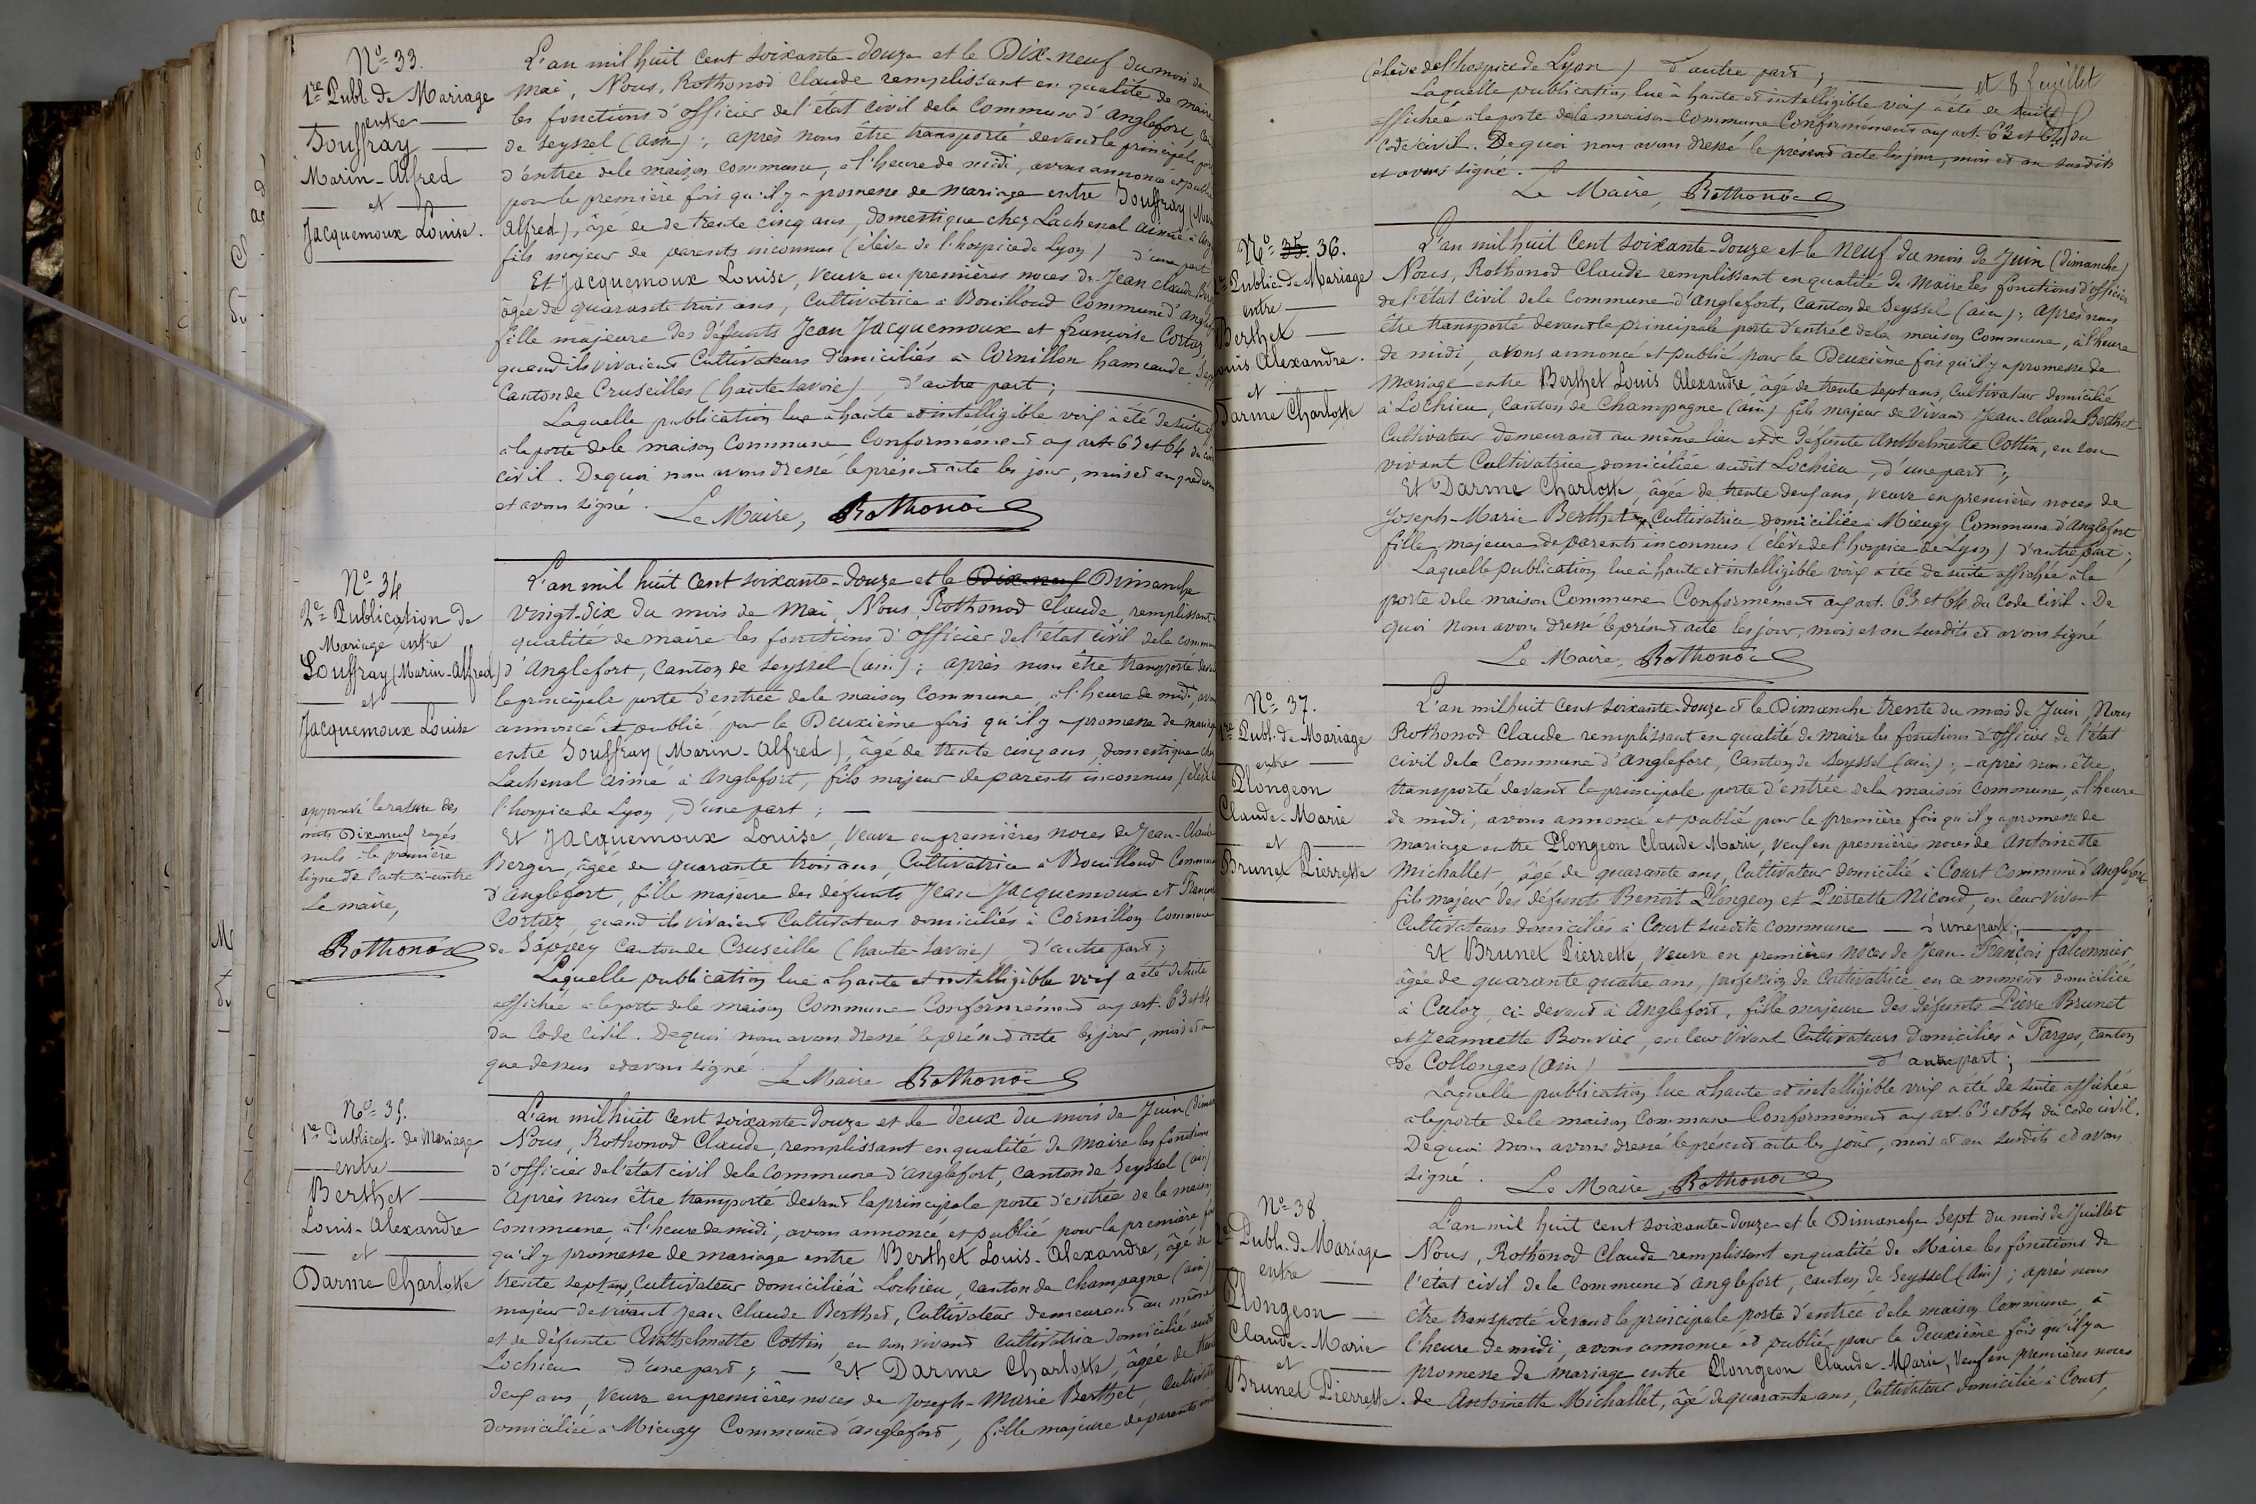 N° 33.
1re Publ. de Mariage
entre
Souffray
Marin-Alfred
et
Jacquemoux Louise.
L'an mil huit cent soixante-douze et le Dix-neuf du mois de
mai, Nous, Rothonod Claude remplissant en qualité de maire
les fonctions d'officier de l'état civil de la Commune d'anglefort,
de seyssel (ain); après nous être transporté devant la principale
d'entrée de la maison commune, à l'heure de midi, avons annoncé et publié
pour la première fois qu'il y a promesse de mariage entre Souffray
Alfred), âgé de de trente cinq ans, domestique chez Lachenal aimé à
fils majeur de parents inconnus (élève de l'hospice de Lyon) d'une part
Et Jacquemoux Louise, veuve en premières noces de Jean claude
âgée de quarante trois ans, Cultivatrice à Bouilloud Commune d'
fille majeure des défunts Jean Jacquemoux et françoise Cortaz,
quand ils vivaient Cultivateurs domiciliés à Cornillon hameau de
Canton de Cruseilles (haute Savoie) d'autre part;
Laquelle publication lue à haute et intelligible voix a été de suite
à la porte de la maison Commune Conformément aux art. 63 et 64 du
civil. De quoi nous avons dressé le présent acte les jour, mois et an
et avons signé. Le Maire, Rothonod
N° 34
2e Publication de
Mariage entre
Souffray (Marin-Alfred)
et
Jacquemoux Louise
approuvé la rature des
mots Dix-neuf rayés
nuls à la première
ligne de l'acte ci-contre
Le maire,
Rothonod
L'an mil huit cent soixante-douze et le Dix-neuf Dimanche
vingt-six du mois de Mai, Nous, Rothonod Claude, remplissant
qualité de maire les fonctions d'officier de l'état civil de la
d'Anglefort, canton de seyssel (ain); après nous être transporté
la principale porte d'entrée de la maison commune à l'heure de midi,
annoncé et publié pour la Deuxième fois qu'il y a promesse de
entre Souffray (Marin-Alfred), âgé de trente cinq ans, domestique
Lachenal aimé à Anglefort, fils majeur de parents inconnus
l'hospice de Lyon, d'une part;
Et Jacquemoux Louise, veuve en premières noces de Jean-Claude
Berger, âgée de quarante trois ans, Cultivatrice à Bouilloud
d'Anglefort, fille majeure des défunts Jean Jacquemoux et
Cortaz, quand ils vivaient Cultivateurs domiciliés à Cornillon Commune
de Sappey canton de Cruseille (haute-Savoie) d'autre part;
Laquelle publication lue à haute et intelligible voix a été de suite
affichée à la porte de la maison Commune Conformément aux art. 63 et 64
du Code Civil. De quoi nous avons dressé le présent acte les jour, mois et an
que dessus et avons signé. Le Maire Rothonod
N° 35.
1re Publicat. de Mariage
entre
Berthet
Louis-Alexandre
et
Darme Charlotte
L'an mil huit cent soixante-douze et le deux du mois de Juin
Nous, Rothonod Claude, remplissant en qualité de Maire les fonctions
d'officier de l'état civil de la Commune d'anglefort, canton de Seyssel (ain)
après nous être transporté devant la principale porte d'entrée de la maison
commune, à l'heure de midi, avons annoncé et publié pour la première
qu'il y promesse de mariage entre Berthet Louis-Alexandre, âgé de
trente sept ans, Cultivateur domicilié à Lochieu, canton de champagne (ain)
majeur de vivant Jean Claude Berthet, Cultivateur demeurant au même
et de défunte Anthelmette Cottin, en son vivant Cultivatrice domicilié
Lochieu d'une part; — Et Darme Charlotte, âgée de
deux ans, veuve en premières noces de Joseph-Marie Berthet
domiciliée à Mieugy Commune d'anglefort, fille majeure de parents
(élève de l'hospice de Lyon) d'autre part;
et 8 feuillet
Laquelle publication lue à haute et intelligible voix a été de suite
affichée à la porte de la maison Commune Conformément aux art. 63 et 64 du
Code civil. De quoi nous avons dressé le présent acte les jour, mois et an susdits
et avons signé.
Le Maire, Rothonod
N° 35. 36.
Public. de Mariage
entre
Berthet
Louis Alexandre.
et
Darme Charlotte
L'an mil huit Cent soixante-douze et le Neuf du mois de Juin (dimanche)
Nous, Rothonod Claude remplissant en qualité de Maire les fonctions d'officier
de l'état civil de la Commune d'Anglefort, canton de Seyssel (ain); après nous
être transporté devant la principale porte d'entrée de la maison Commune, à l'heure
de midi, avons annoncé et publié pour la Deuxième fois qu'il y a promesse de
Mariage entre Berthet Louis Alexandre, âgé de trente sept ans, Cultivateur domicilié
à Lochieu, Canton de Champagne (ain) fils majeur de vivant Jean-Claude Berthet
Cultivateur demeurant au même lieu et de défunte Anthelmette Cottin, en son
vivant Cultivatrice domiciliée audit Lochieu, d'une part;
Et Darme Charlotte, âgée de trente deux ans, veuve en premières noces de
Joseph-Marie Berthet, Cultivatrice domiciliée à Mieugy Commune d'Anglefort
fille majeure de parents inconnus (élève de l'hospice de Lyon) d'autre part;
Laquelle publication lue à haute et intelligible voix a été de suite affichée à la
porte de la maison Commune Conformément aux art. 63 et 64 du Code Civil. De
quoi nous avons dressé le présent acte les jour, mois et an susdits et avons signé
Le Maire, Rothonod
N° 37.
1re Publ. de Mariage
entre
Plongeon
Claude-Marie
et
Brunet Pierrette
L'an mil huit cent soixante-douze et le Dimanche trente du mois de Juin, Nous
Rothonod Claude remplissant en qualité de maire les fonctions d'officier de l'état
civil de la Commune d'Anglefort, canton de Seyssel (ain); après nous être
transporté devant la principale porte d'entrée de la maison commune, à l'heure
de midi, avons annoncé et publié pour la première fois qu'il y a promesse de
mariage entre Plongeon Claude Marie, veuf en premières noces de Antoinette
Michallet, âgé de quarante ans, Cultivateur domicilié à Court commune d'Anglefort
fils majeur des défunts Benoit Plongeon et Pierrette Nicoud, en leur vivant
Cultivateurs domiciliés à Court susdite commune — d'une part;
Et Brunet Pierrette, veuve en premières noces de Jean-François falconnier,
âgée de quarante quatre ans, profession de Cultivatrice, en ce moment domiciliée
à Culoz ci-devant à Anglefort, fille majeure des défunts Pierre Brunet
et Jeannette Bouvier, en leur vivant Cultivateurs domiciliés à Farges, canton
de Collonges (ain) d'autre part;
Laquelle publication lue à haute et intelligible voix a été de suite affichée
à la porte de la maison Commune Conformément aux art. 63 et 64 du code civil.
De quoi nous avons dressé le présent acte les jour, mois et an susdits et avons
signé. Le Maire, Rothonod
N° 38
2e Publ. de Mariage
entre
Plongeon
Claude-Marie
et
Brunet Pierrette
L'an mil huit cent soixante-douze et le Dimanche Sept du mois de Juillet
Nous, Rothonod Claude remplissant en qualité de Maire les fonctions de
l'état civil de la Commune d'anglefort, canton de Seyssel (Ain); après nous
être transporté devant la principale porte d'entrée de la maison Commune, à
l'heure de midi, avons annoncé et publié pour la deuxième fois qu'il y a
promesse de mariage entre Plongeon Claude-Marie, veuf en premières noces
de Antoinette Michallet, âgé de quarante ans, Cultivateur domicilié à Court,